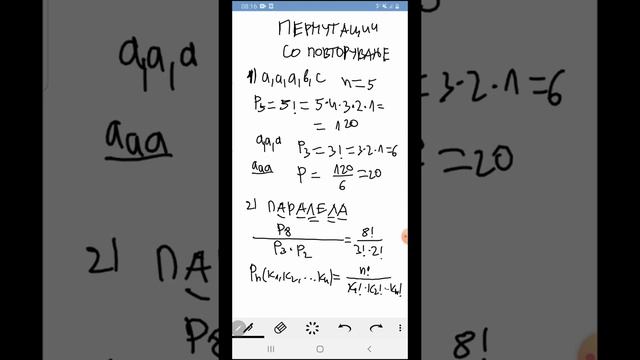 08:16
ПЕРМУТАЦИИ
СО ПОВТОРУВАЊЕ
1) a,a,a,b,c n=5
P₅=5!=5·4·3·2·1=
=120
a,a,a P₃=3!=3·2·1=6
aaa P=120/6=20
2) ПАРАЛЕЛА
P₈/(P₃·P₂)=8!/(3!·2!)
Pₙ(k₁,k₂,...kₙ)=n!/(k₁!·k₂!-kₙ!)
a,a,a
aaa
2) ПА
P₈
=3·2·1=6
=20
8!